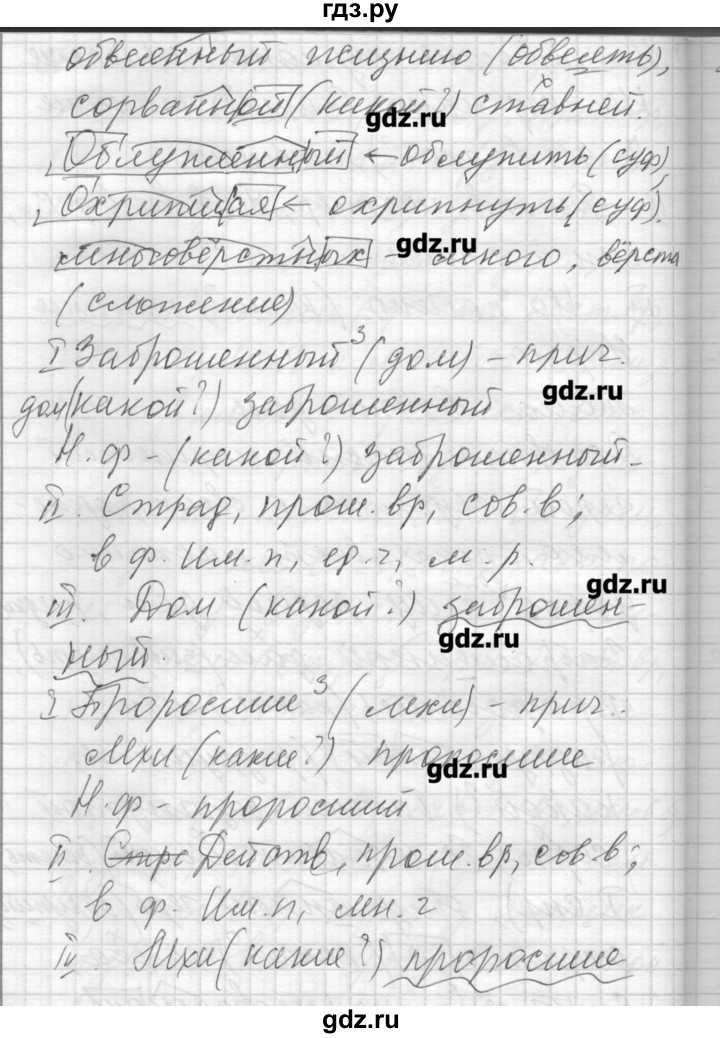 гдз.ру
обвеянный жизнию (обвеять),
сорванной (какой?) ставней.
gdz.ru
Облупленный ← облупить (суф),
Охрипшая ← охрипнуть (суф).
gdz.ru
многовёрстных - много, вёрста
(сложение)
I Заброшенный³ (дом) - прич.
gdz.ru
дом (какой?) заброшенный
Н.ф - (какой?) заброшенный -
II. Страд, прош. вр, сов. в;
в ф. Им. п, ед. ч, м. р.
gdz.ru
III. Дом (какой?) заброшен-
gdz.ru
ный.
I Проросшие³ (мхи) - прич.
Мхи (какие?) проросшие
gdz.ru
Н.ф - проросший
II. Стра Действ, прош. вр, сов. в;
в ф. Им. п, мн. ч
IV. Мхи (какие?) проросшие
gdz.ru